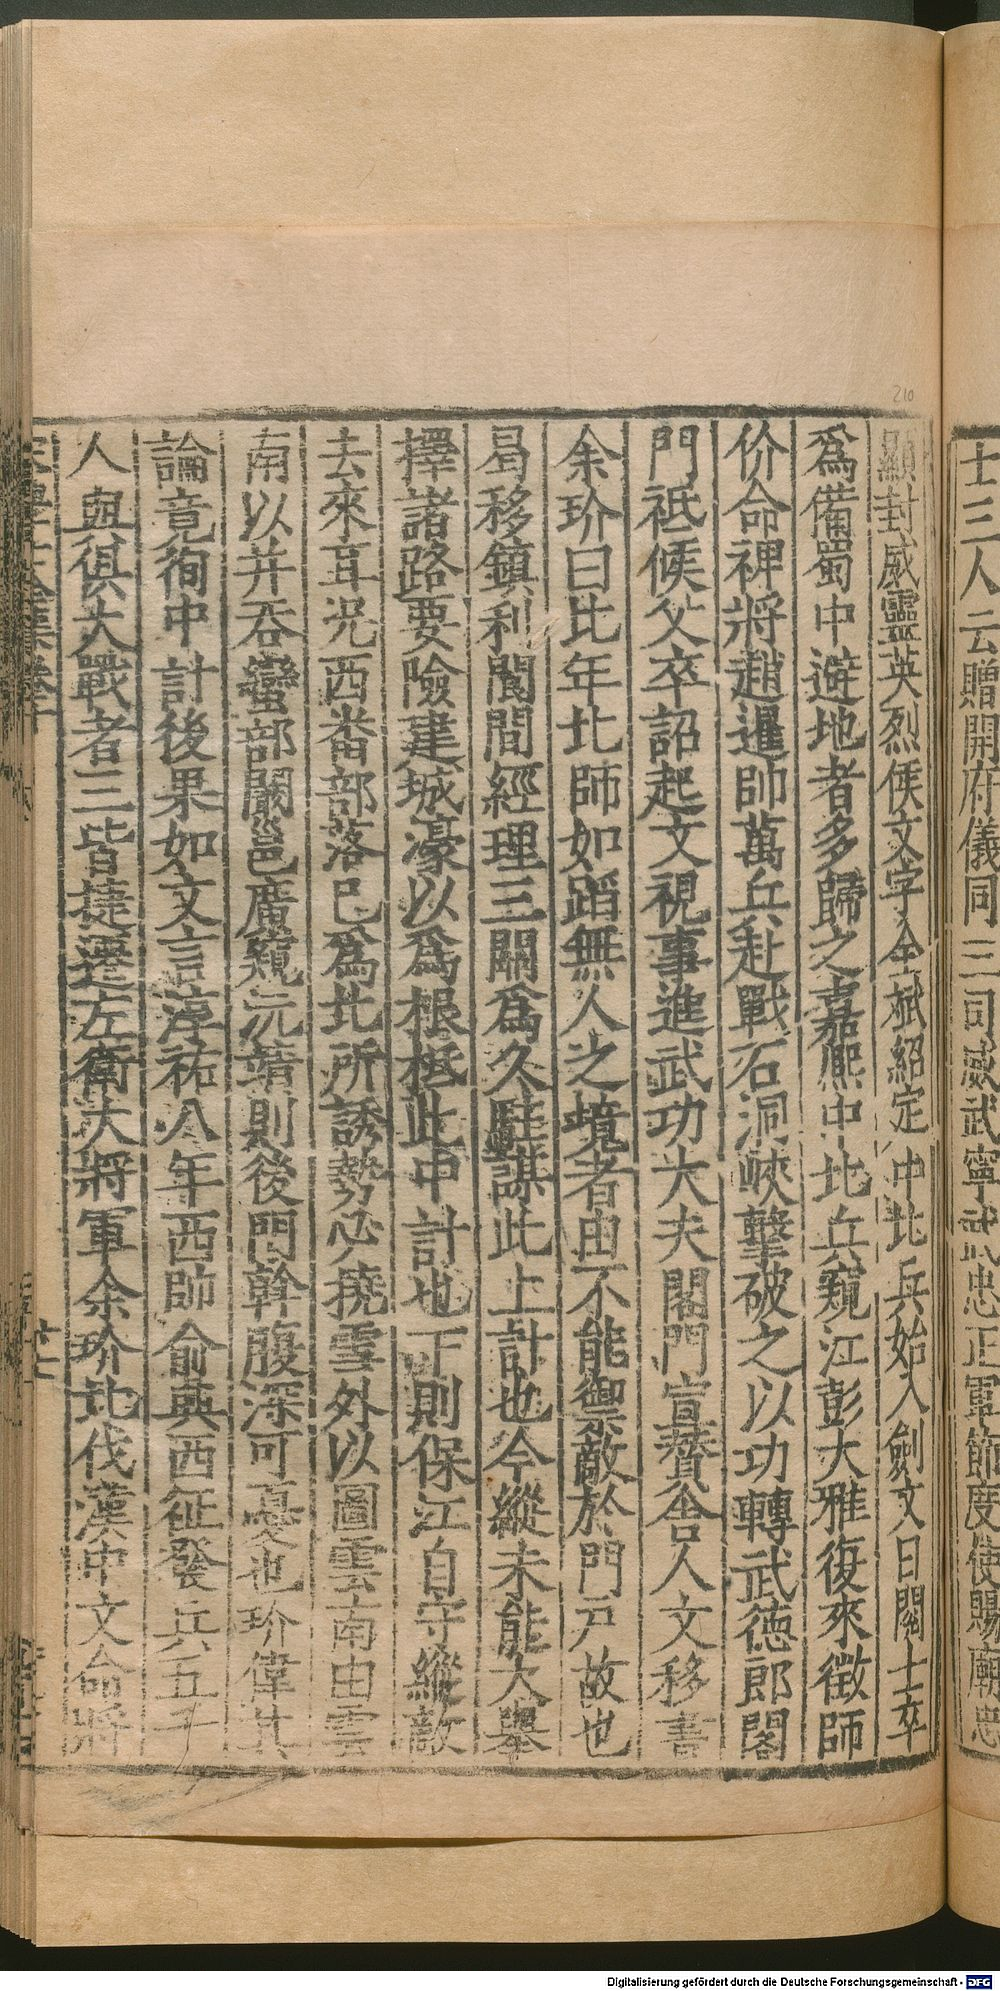 士三人云贈開府儀同三司威武寧武忠正軍節度使賜廟忠
顯封威靈英烈侯文字全斌紹定中北兵始入劍文日閱士卒
爲備蜀中避地者多歸之嘉熙中北兵窺江彭大雅復來徵師
价命裨將趙暹帥萬兵赴戰石洞峽擊破之以功轉武德郎閤
門祗候父卒詔起文視事進武功大夫閤門宣贊舍人文移書
余玠曰比年北師如蹈無人之境者由不能禦敵於門戶故也
曷移鎮利閬間經理三關爲久駐謀此上計也今縱未能大舉
擇諸路要險建城濠以爲根柢此中計也下則保江自守縱敵
去來耳况西番部落已爲北所誘勢必撓雪外以圖雲南由雲
南以并吞蠻部闞邕廣窺沅靖則後門斡腹深可憂也玠偉其
論竟徇中計後果如文言淳祐八年西帥俞興西征發兵五千
人與俱大戰者三皆捷遷左衛大將軍余玠北伐漢中文命將
廿七
210
Digitalisierung gefördert durch die Deutsche Forschungsgemeinschaft - DFG